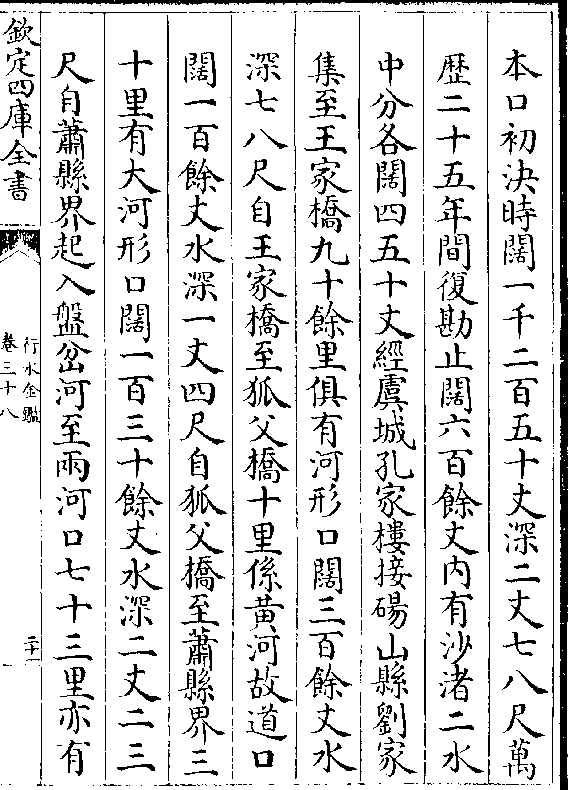 本口初決時闊一千二百五十丈深二丈七八尺萬
歴二十五年間復勘止闊六百餘丈内有沙渚二水
中分各闊四五十丈經虞城孔家樓接碭山縣劉家
集至王家橋九十餘里俱有河形口闊三百餘丈水
深七八尺自王家橋至狐父橋十里係黄河故道口
闊一百餘丈水深一丈四尺自狐父橋至蕭縣界三
十里有大河形口闊一百三十餘丈水深二丈二三
尺自蕭縣界起入盤岔河至兩河口七十三里亦有
欽定四庫全書
行水金鑑
卷三十八
二十一